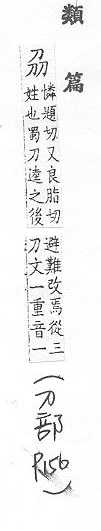 類篇
刕
憐題切又良脂切
姓也蜀刀逵之後
避難改焉從三
刀文一重音一
(刀部 P.156)